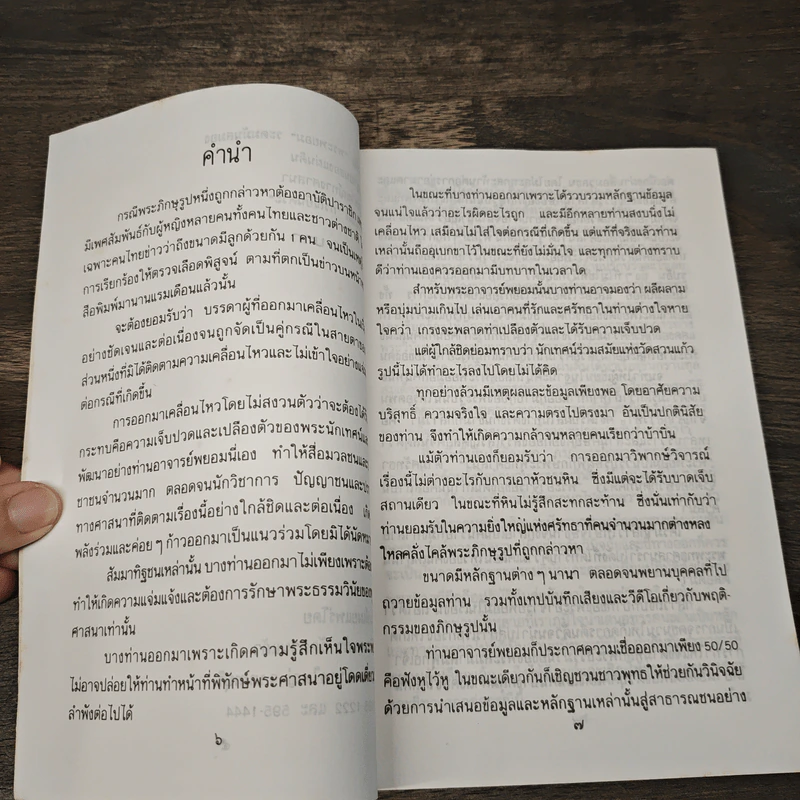 คำนำ
กรณีพระภิกษุรูปหนึ่งถูกกล่าวหาต้องอาบัติปาราชิก
มีเพศสัมพันธ์กับผู้หญิงหลายคนทั้งคนไทยและชาวต่างชาติ
เฉพาะคนไทยข่าวว่าถึงขนาดมีลูกด้วยกัน ๑ คน จนเป็นเหตุ
การเรียกร้องให้ตรวจเลือดพิสูจน์ ตามที่ตกเป็นข่าวบนหน้า
สือพิมพ์มานานแรมเดือนแล้วนั้น
จะต้องยอมรับว่า บรรดาผู้ที่ออกมาเคลื่อนไหวใน
อย่างชัดเจนและต่อเนื่องจนถูกจัดเป็นคู่กรณีในสายตา
ส่วนหนึ่งที่มิได้ติดตามความเคลื่อนไหวและไม่เข้าใจอย่าง
ต่อกรณีที่เกิดขึ้น
การออกมาเคลื่อนไหวโดยไม่สงวนตัวว่าจะต้องได้
กระทบคือความเจ็บปวดและเปลืองตัวของพระนักเทศน์
พัฒนาอย่างท่านอาจารย์พยอมนี่เอง ทำให้สื่อมวลชน
ชาชนจำนวนมาก ตลอดจนนักวิชาการ ปัญญาชน
ทางศาสนาที่ติดตามเรื่องนี้อย่างใกล้ชิดและต่อเนื่อง
พลังร่วมและค่อย ๆ ก้าวออกมาเป็นแนวร่วมโดยมิได้นัด
สัมมาทิฐชนเหล่านั้น บางท่านออกมาไม่เพียงเพราะ
ทำให้เกิดความแจ่มแจ้งและต้องการรักษาพระธรรมวินัยของ
ศาสนาเท่านั้น
บางท่านออกมาเพราะเกิดความรู้สึกเห็นใจพระ
ไม่อาจปล่อยให้ท่านทำหน้าที่พิทักษ์พระศาสนาอยู่โดดเดี่ยว
ลำพังต่อไปได้
๖
ในขณะที่บางท่านออกมาเพราะได้รวบรวมหลักฐานข้อมูล
จนแน่ใจแล้วว่าอะไรผิดอะไรถูก และมีอีกหลายท่านสงบนิ่งไม่
เคลื่อนไหว เสมือนไม่ใส่ใจต่อกรณีที่เกิดขึ้น แต่แท้ที่จริงแล้วท่าน
เหล่านั้นถืออุเบกขาไว้ในขณะที่ยังไม่มั่นใจ และทุกท่านต่างทราบ
ดีว่าท่านเองควรออกมามีบทบาทในเวลาใด
สำหรับพระอาจารย์พยอมนั้นบางท่านอาจมองว่า ผลีผลาม
หรือบุ่มบ่ามเกินไป เล่นเอาคนที่รักและศรัทธาในท่านต่างใจหาย
ใจคว่ำ เกรงจะพลาดท่าเปลืองตัวและได้รับความเจ็บปวด
แต่ผู้ใกล้ชิดย่อมทราบว่า นักเทศน์ร่วมสมัยแห่งวัดสวนแก้ว
รูปนี้ไม่ได้ทำอะไรลงไปโดยไม่ได้คิด
ทุกอย่างล้วนมีเหตุผลและข้อมูลเพียงพอ โดยอาศัยความ
บริสุทธิ์ ความจริงใจ และความตรงไปตรงมา อันเป็นปกตินิสัย
ของท่าน จึงทำให้เกิดความกล้าจนหลายคนเรียกว่าบ้าบิ่น
แม้ตัวท่านเองก็ยอมรับว่า การออกมาวิพากษ์วิจารณ์
เรื่องนี้ไม่ต่างอะไรกับการเอาหัวชนหิน ซึ่งมีแต่จะได้รับบาดเจ็บ
สถานเดียว ในขณะที่หินไม่รู้สึกสะทกสะท้าน ซึ่งนั่นเท่ากับว่า
ท่านยอมรับในความยิ่งใหญ่แห่งศรัทธาที่คนจำนวนมากต่างหลง
ใหลคลั่งไคล้พระภิกษุรูปที่ถูกกล่าวหา
ขนาดมีหลักฐานต่าง ๆ นานา ตลอดจนพยานบุคคลที่ไป
ถวายข้อมูลท่าน รวมทั้งเทปบันทึกเสียงและวีดีโอเกี่ยวกับพฤติ-
กรรมของภิกษุรูปนั้น
ท่านอาจารย์พยอมก็ประกาศความเชื่อออกมาเพียง 50/50
คือฟังหูไว้หู ในขณะเดียวกันก็เชิญชวนชาวพุทธให้ช่วยกันวินิจฉัย
ด้วยการนำเสนอข้อมูลและหลักฐานเหล่านั้นสู่สาธารณชนอย่าง
๗